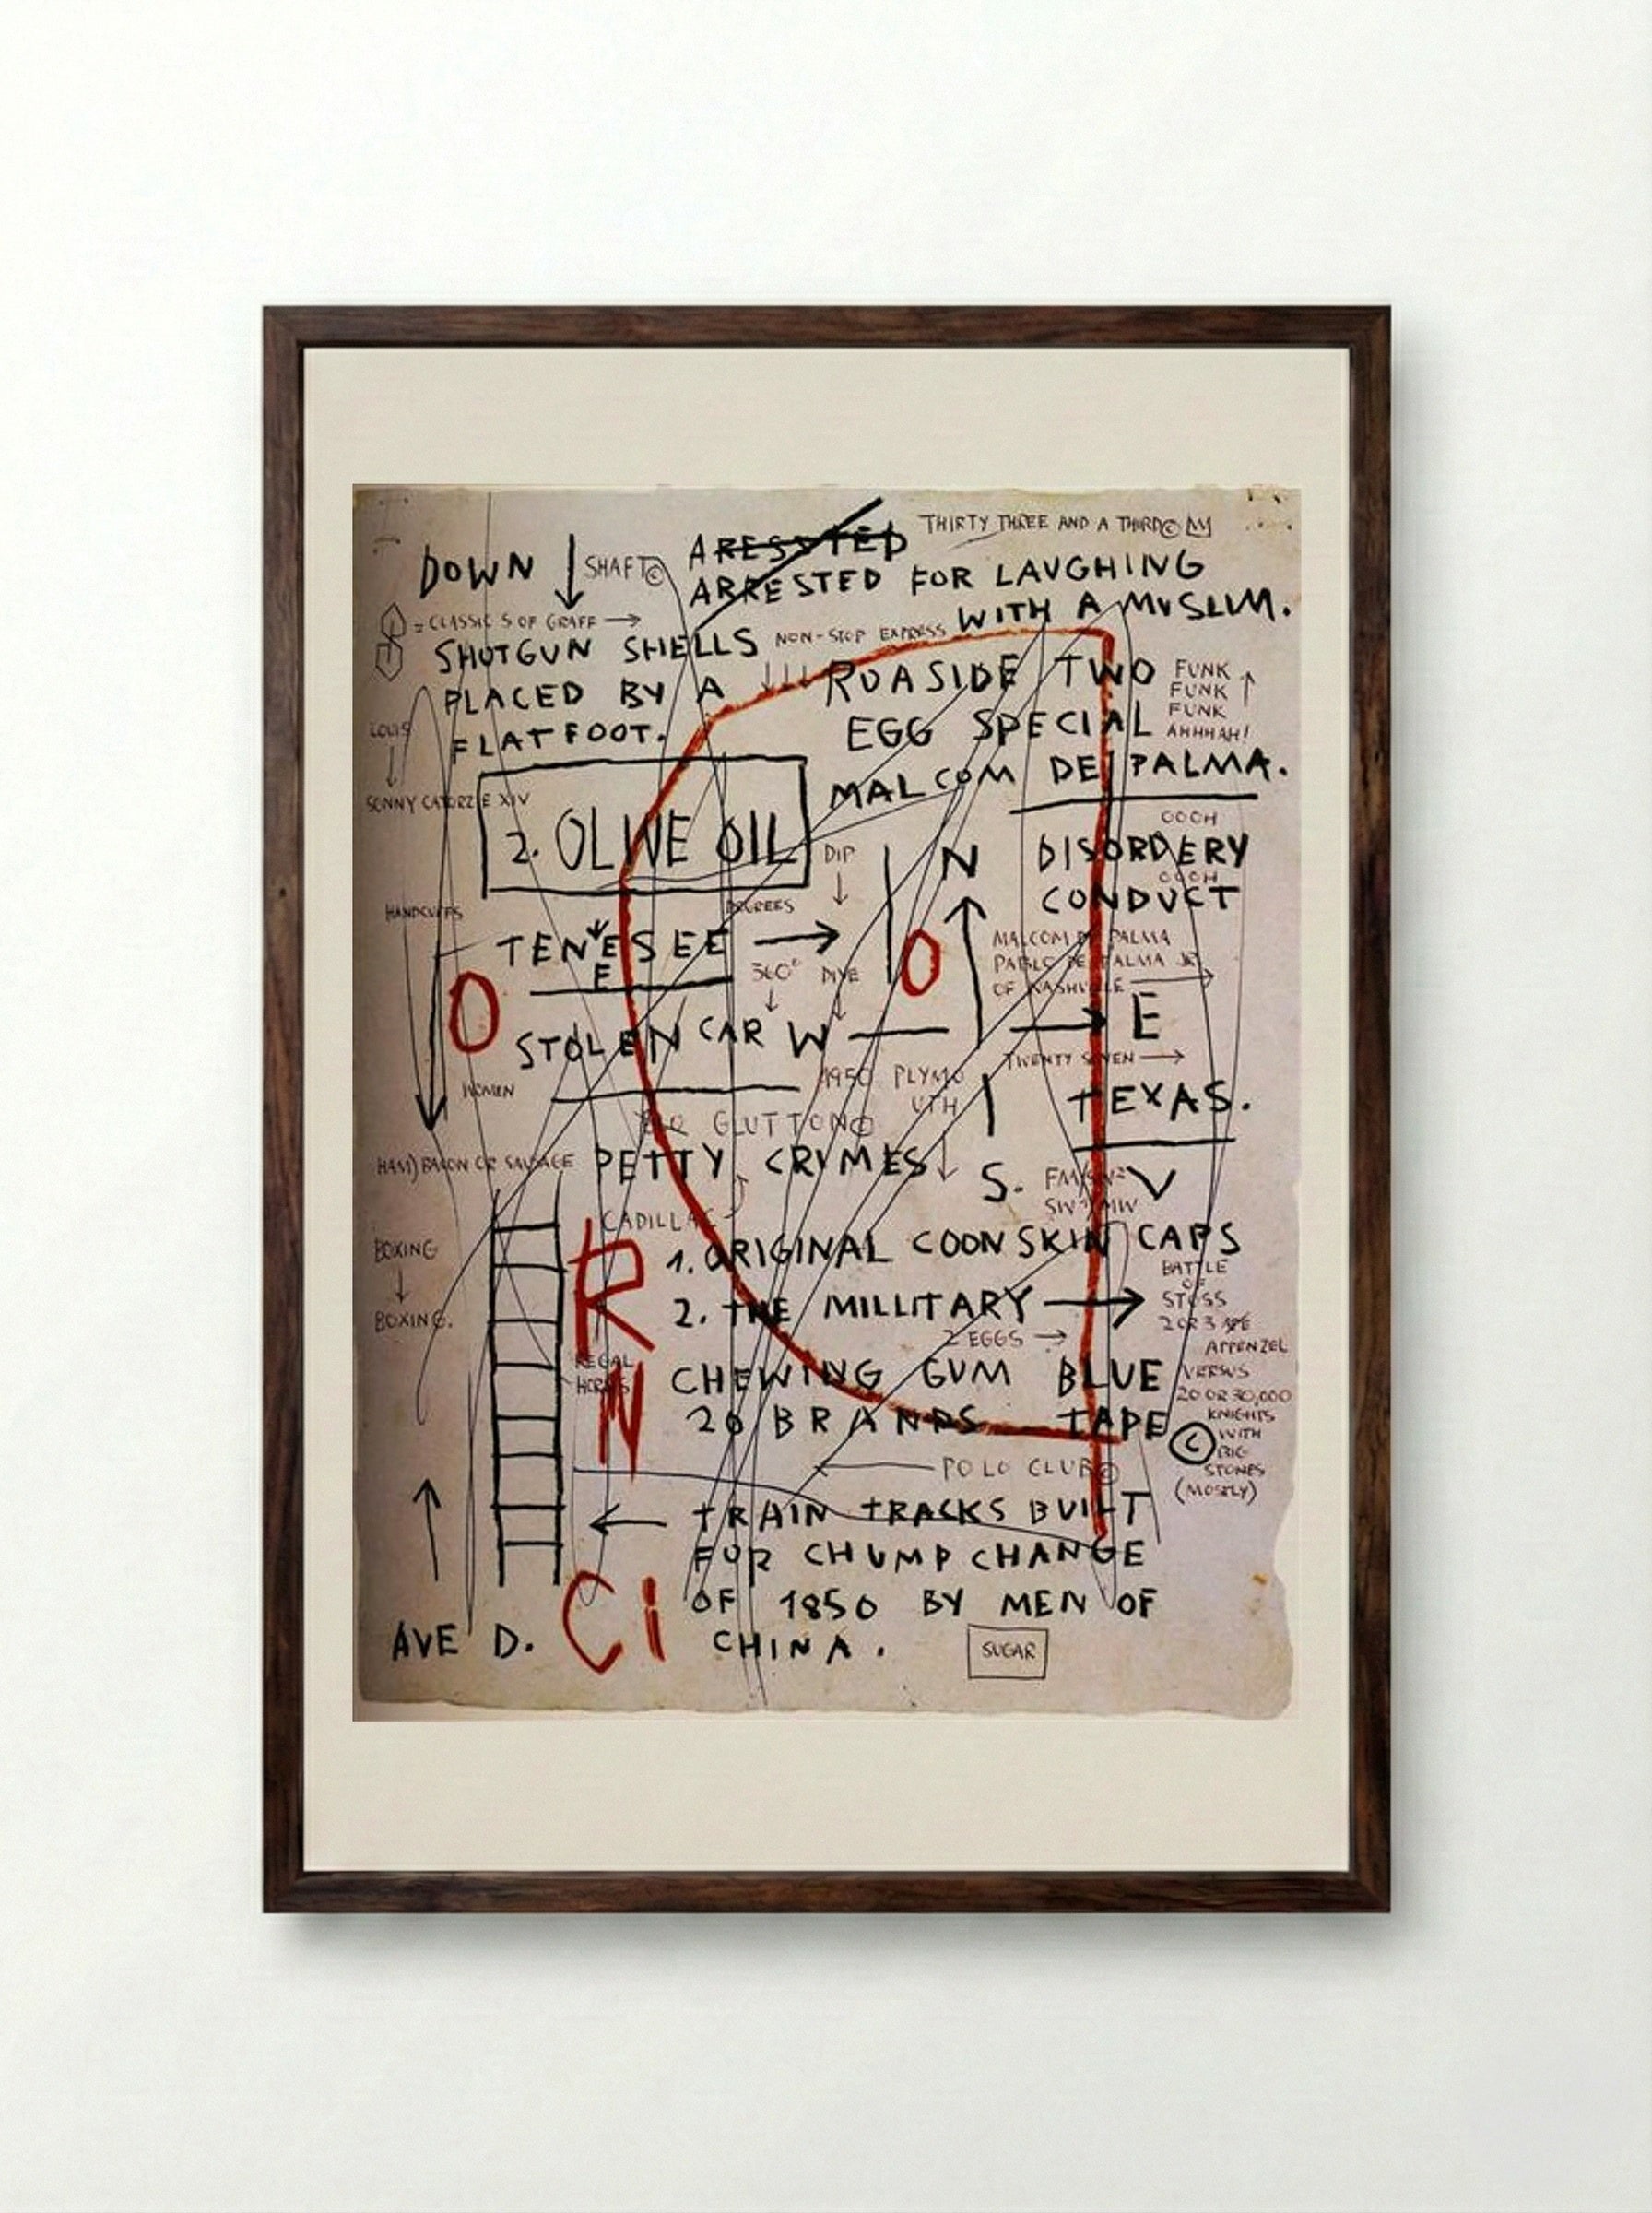 THIRTY THREE AND A THIRD©
DOWN
SHAFT©
ARESSTED
ARRESTED FOR LAUGHING
WITH A MUSLIM.
= CLASSIC S OF GRAFF
SHOTGUN SHELLS
NON-STOP EXPRESS
PLACED BY A
FLATFOOT.
ROASIDE TWO
EGG SPECIAL
MALCOM DE PALMA.
FUNK
FUNK
FUNK
AHHHAH!
LOUIS
SONNY CATORZE XIV
2. OLIVE OIL
DIP
N
OOOH
DISORDERY
OOOH
CONDUCT
HANDCUFFS
DEGREES
TENESEE
E
360°
DIVE
O
O
MALCOM DE PALMA
PABLO DE PALMA JR
OF NASHVILLE
STOLEN CAR
W
E
WOMEN
1950 PLYMO
UTH
TWENTY SEVEN
TEXAS.
GLUTTON©
HAM) BACON OR SAUSAGE
PETTY CRIMES
S.
V
CADILLAC
R
1. ORIGINAL COONSKIN CAPS
BOXING
BOXING.
2. THE MILLITARY
BATTLE
OF
STOSS
2 OR 3
APPENZEL
VERSUS
20 OR 30,000
KNIGHTS
WITH
BIG
STONES
(MOSTLY)
2 EGGS
REGAL
HORNS
N
CHEWING GUM BLUE
20 BRANDS TAPE
©
POLO CLUB©
TRAIN TRACKS BUILT
FOR CHUMP CHANGE
OF 1850 BY MEN OF
CHINA.
Ci
AVE D.
SUGAR